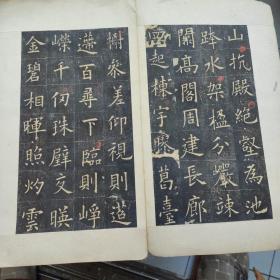 山抗殿絕壑為池
跨水架楹分巖竦
闕高閣周建長廊
四起棟宇膠葛臺
榭參差仰視則迢
遰百尋下臨則崢
嶸千仞珠壁交暎
金碧相暉照灼雲